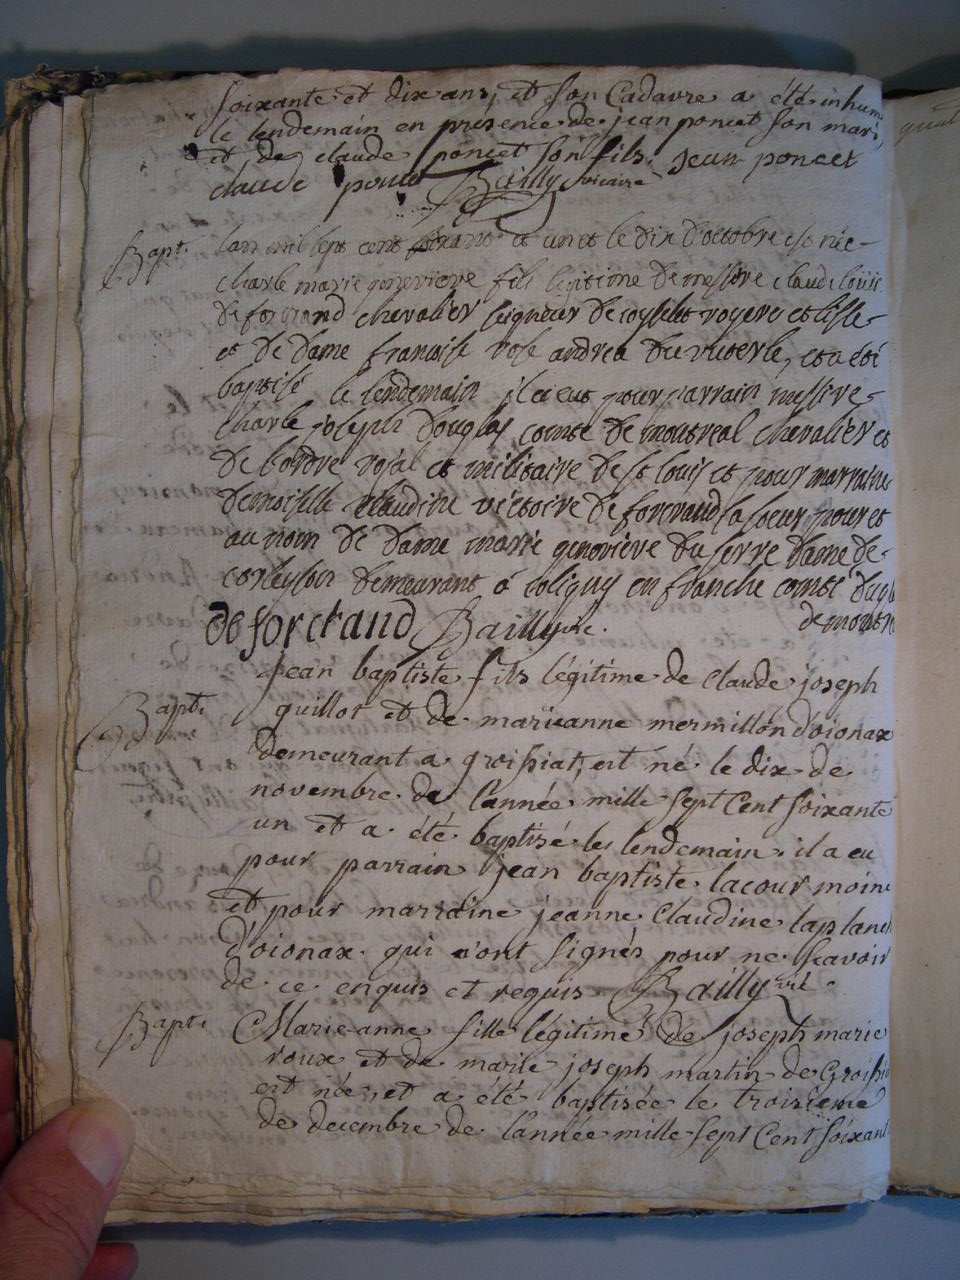 soixante et dix ans, et son Cadavre a été inhum
le lendemain en presence de jean poncet son mari,
et de claude poncet son fils. jean poncet
claude ponce Bailly vicaire
Bapt. lan mil sept cent soixante et un et le dix d'octobre est née
charle marie genevieve fils legitime de messire claude louis
de forcrand chevalier seigneur de coyselet royere et lisle
et de dame francoise rose andrea du et a été
baptisé le lendemain il a eut pour parrain messire
charle joseph douglas comte de montreal chevalier et
de lordre royal et militaire de st louis et pour marraine
demoiselle claudine victoire de forcrand sa soeur pour et
au nom de dame marie genoviéve du serre dame de
demeurant a coligny en franche comté
de forcrand Bailly vic. de montre
Bapt. jean baptiste fils légitime de claude joseph
guillot et de marieanne mermillon d'oionax
demeurant a groissiat, est né le dix de
novembre de l'année mille sept Cent soixante
un et a été baptisé le lendemain. il a eu
pour parrain jean baptiste lacour moine
et pour marraine jeanne Claudine laplan
d'oionax qui n'ont signés pour ne scavoir
de ce enquis et requis Bailly vic.
Bapt. Marie anne fille légitime de joseph marie
roux et de marie joseph martin de Groissi
est née, et a été baptisée le troisieme
de decembre de l'année mille sept Cent soixant